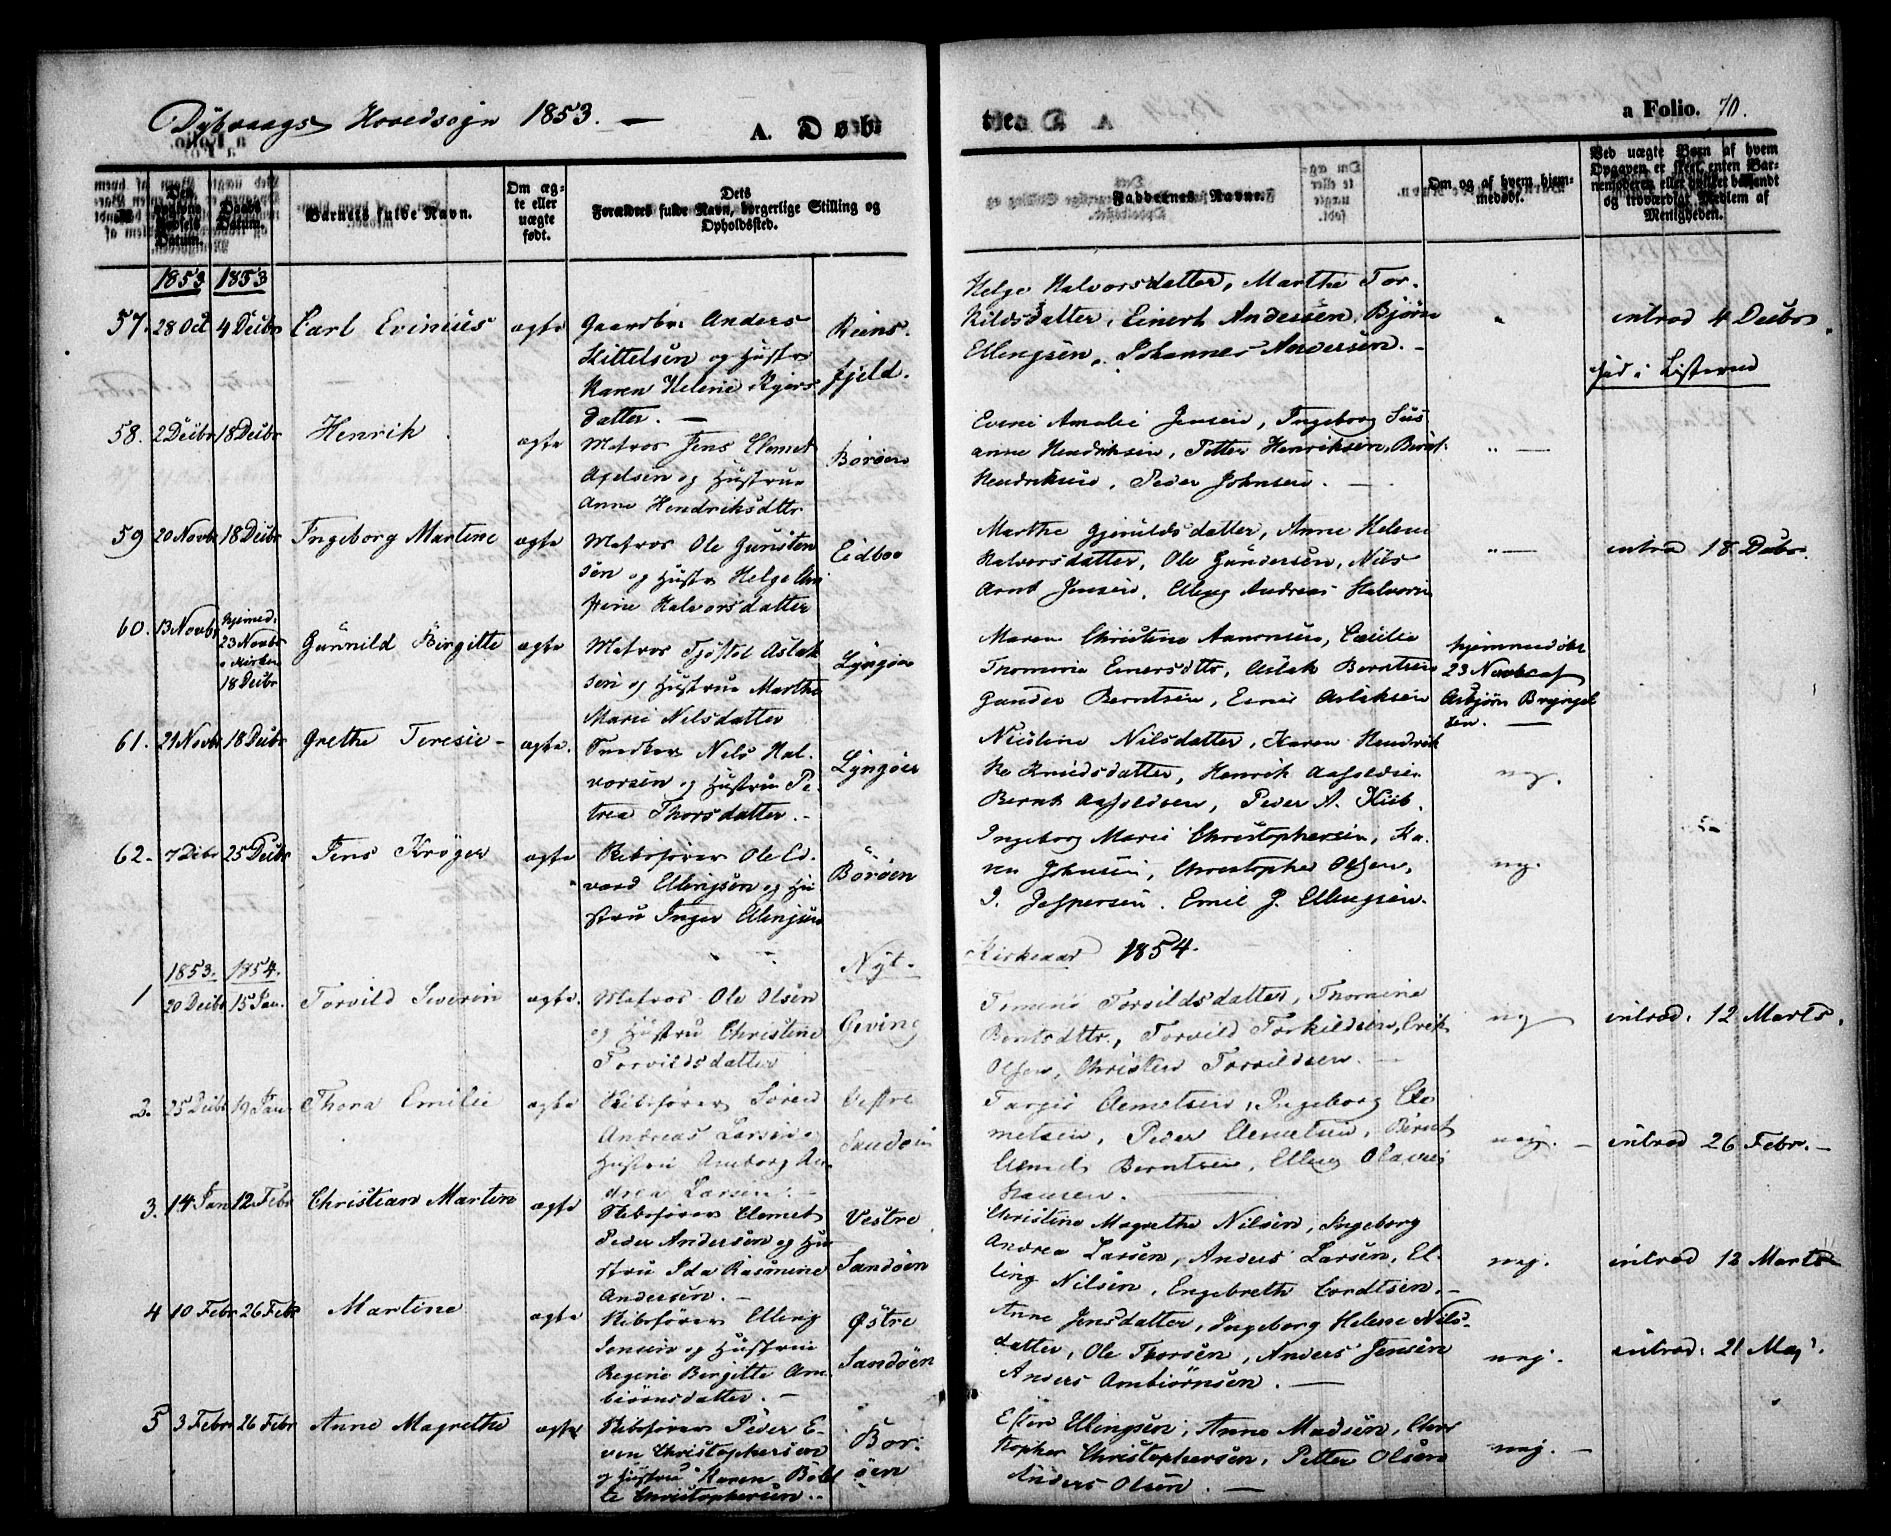 Dybvaags Hovedsogn 1853. —
A. Døb
te.
a Folio. 70.
Barnets fulde Navn.
Om æg-
te eller
uægte
født.
Dets
Forældres fulde Navn, borgerlige Stilling og
Opholdssted.
Faddernes Navne.
Om og af hvem hjem-
medøbt.
Ved uægte Børn af hvem
Opgaven er skeet, enten Bar-
nemoderen eller hvilket bekjendt
og troværdigt Medlem af
Menigheden.
1853 1853
57. 28 Oct 4 Decbr Carl Evinius ægte
Gaardbr. Anders
Kittelsen og Hustru
Karen Helene
datter. —
Reins-
fjeld.
Helge Halvorsdatter, Marthe Tor-
kildsdatter, Einert Andersen, Bjørn
Ellingsen, Johannes Andersen. —
introd 4 Decbr.
58. 2 Decbr 18 Decbr Henrik ægte
Matros Jens Clemet
Axelsen og Hustrue
Anne Hendriksdttr
Borøen
Amalie Jensen, Ingeborg Sus
anne Hendriksen, Petter Henriksen, Bernt
Hendriksen, Peder Johnsen. —
" —
59 20 Novbr 18 Decbr Ingeborg Martine ægte
Matros Ole Gunsten
sen og Hustr Helge Chri
stine Halvorsdatter
Eidboe
Marthe datter, Anne Helene
Halvorsdatter, Ole Gundersen, Nils
Arnt Jensen, Elling Andreas Halvorsen
" —
introd 18 Decbr.
60. 13 Novbr
hjemmed.
23 Novbr
i Kirken
18 Decbr
Gunnild Birgitte ægte
Matros Tjøstol Aslak
sen og Hustrue Marthe
Marie Nilsdatter
Lyngøen
Maren Christine Aanonsen, Cecilie
Thomine Einersdttr, Aslak Berntsen
Gunder Berntsen, Aslaksen
hjemmedøbt
23 Novbr af
Asbjørn Bryngel
sen. —
61. 21 Novbr 18 Decbr Grethe Teresie — ægte.
Snedker Nils Hal-
vorsen og Hustru Pe-
trea Thorsdatter. —
Lyngøen
Nicoline Nilsdatter, Karen Hendrik
ke Knudsdatter, Henrik
Bernt Peder A.
nej.
62. 7 Decbr 25 Decbr Jens Krøger ægte
Skibsfører Ole Ed-
vard Ellingsen og Hu-
stru Inger Ellingsen
Borøen
Ingeborg Marie Christophersen, Ka-
ren Johnsen, Christopher Olsen,
J. Jespersen. Emil J. Ellingsen.
nej.
1853. 1854.
Nyt. Kirkeaar 1854.
1 20 Decbr 15 Jan. Torvild Severin ægte.
Matros Ole Olsen
og Hustru Christine
Torvildsdatter
Geving
Torvildsdatter, Thomine
Berntsdttr., Torvild Torkildsen, Erik
Olsen, Christen Torvildsen. —
nej
introd. 12 Marts.
2. 25 Decbr 19 Jan. Thora Emilie ægte
Skibsfører Søren
Andreas Larsen og
Hustru Amborg An-
drea Larsen. —
Vestre
Sandøen
Clemetsen, Ingeborg Cle
metsen, Peder Clemetsen, Bernt
Clemet Berntsen, Elling Olaves
Hansen.
nej. —
introd 26 Febr. —
3. 14 Jan 12 Febr Christian Martin ægte
Skibsfører Clemet
Peder Andersen og Hu-
stru Ida Rasmine
Andersen. —
Vestre
Sandøen
Christine Magrethe Nilsen, Ingeborg
Andrea Larsen, Anders Larsen, El-
ling Nilsen, Engebreth Cordtsen. —
nej.
introd 12 Marts
4 10 Febr 26 Febr Martine ægte
Skibsfører Elling
Jensen og Hustrue
Regine Birgitte Am-
biørnsdatter. —
Østre
Sandøen
Anne Jensdatter, Ingeborg Helene Nils-
datter, Ole Thorsen, Anders Jensen
Anders Ambiørnsen. —
nej.
introd. 21 Maj.
5 3 Febr 26 Febr Anne Magrethe ægte
Skibsfører Peder E-
ven Christophersen
og Hustru Karen Bolet
te Christophersen. —
Bor-
øen
Ellingsen, Anne Madsen, Chris
topher Christophersen, Petter Olsen
Anders Olsen. —
nej. —